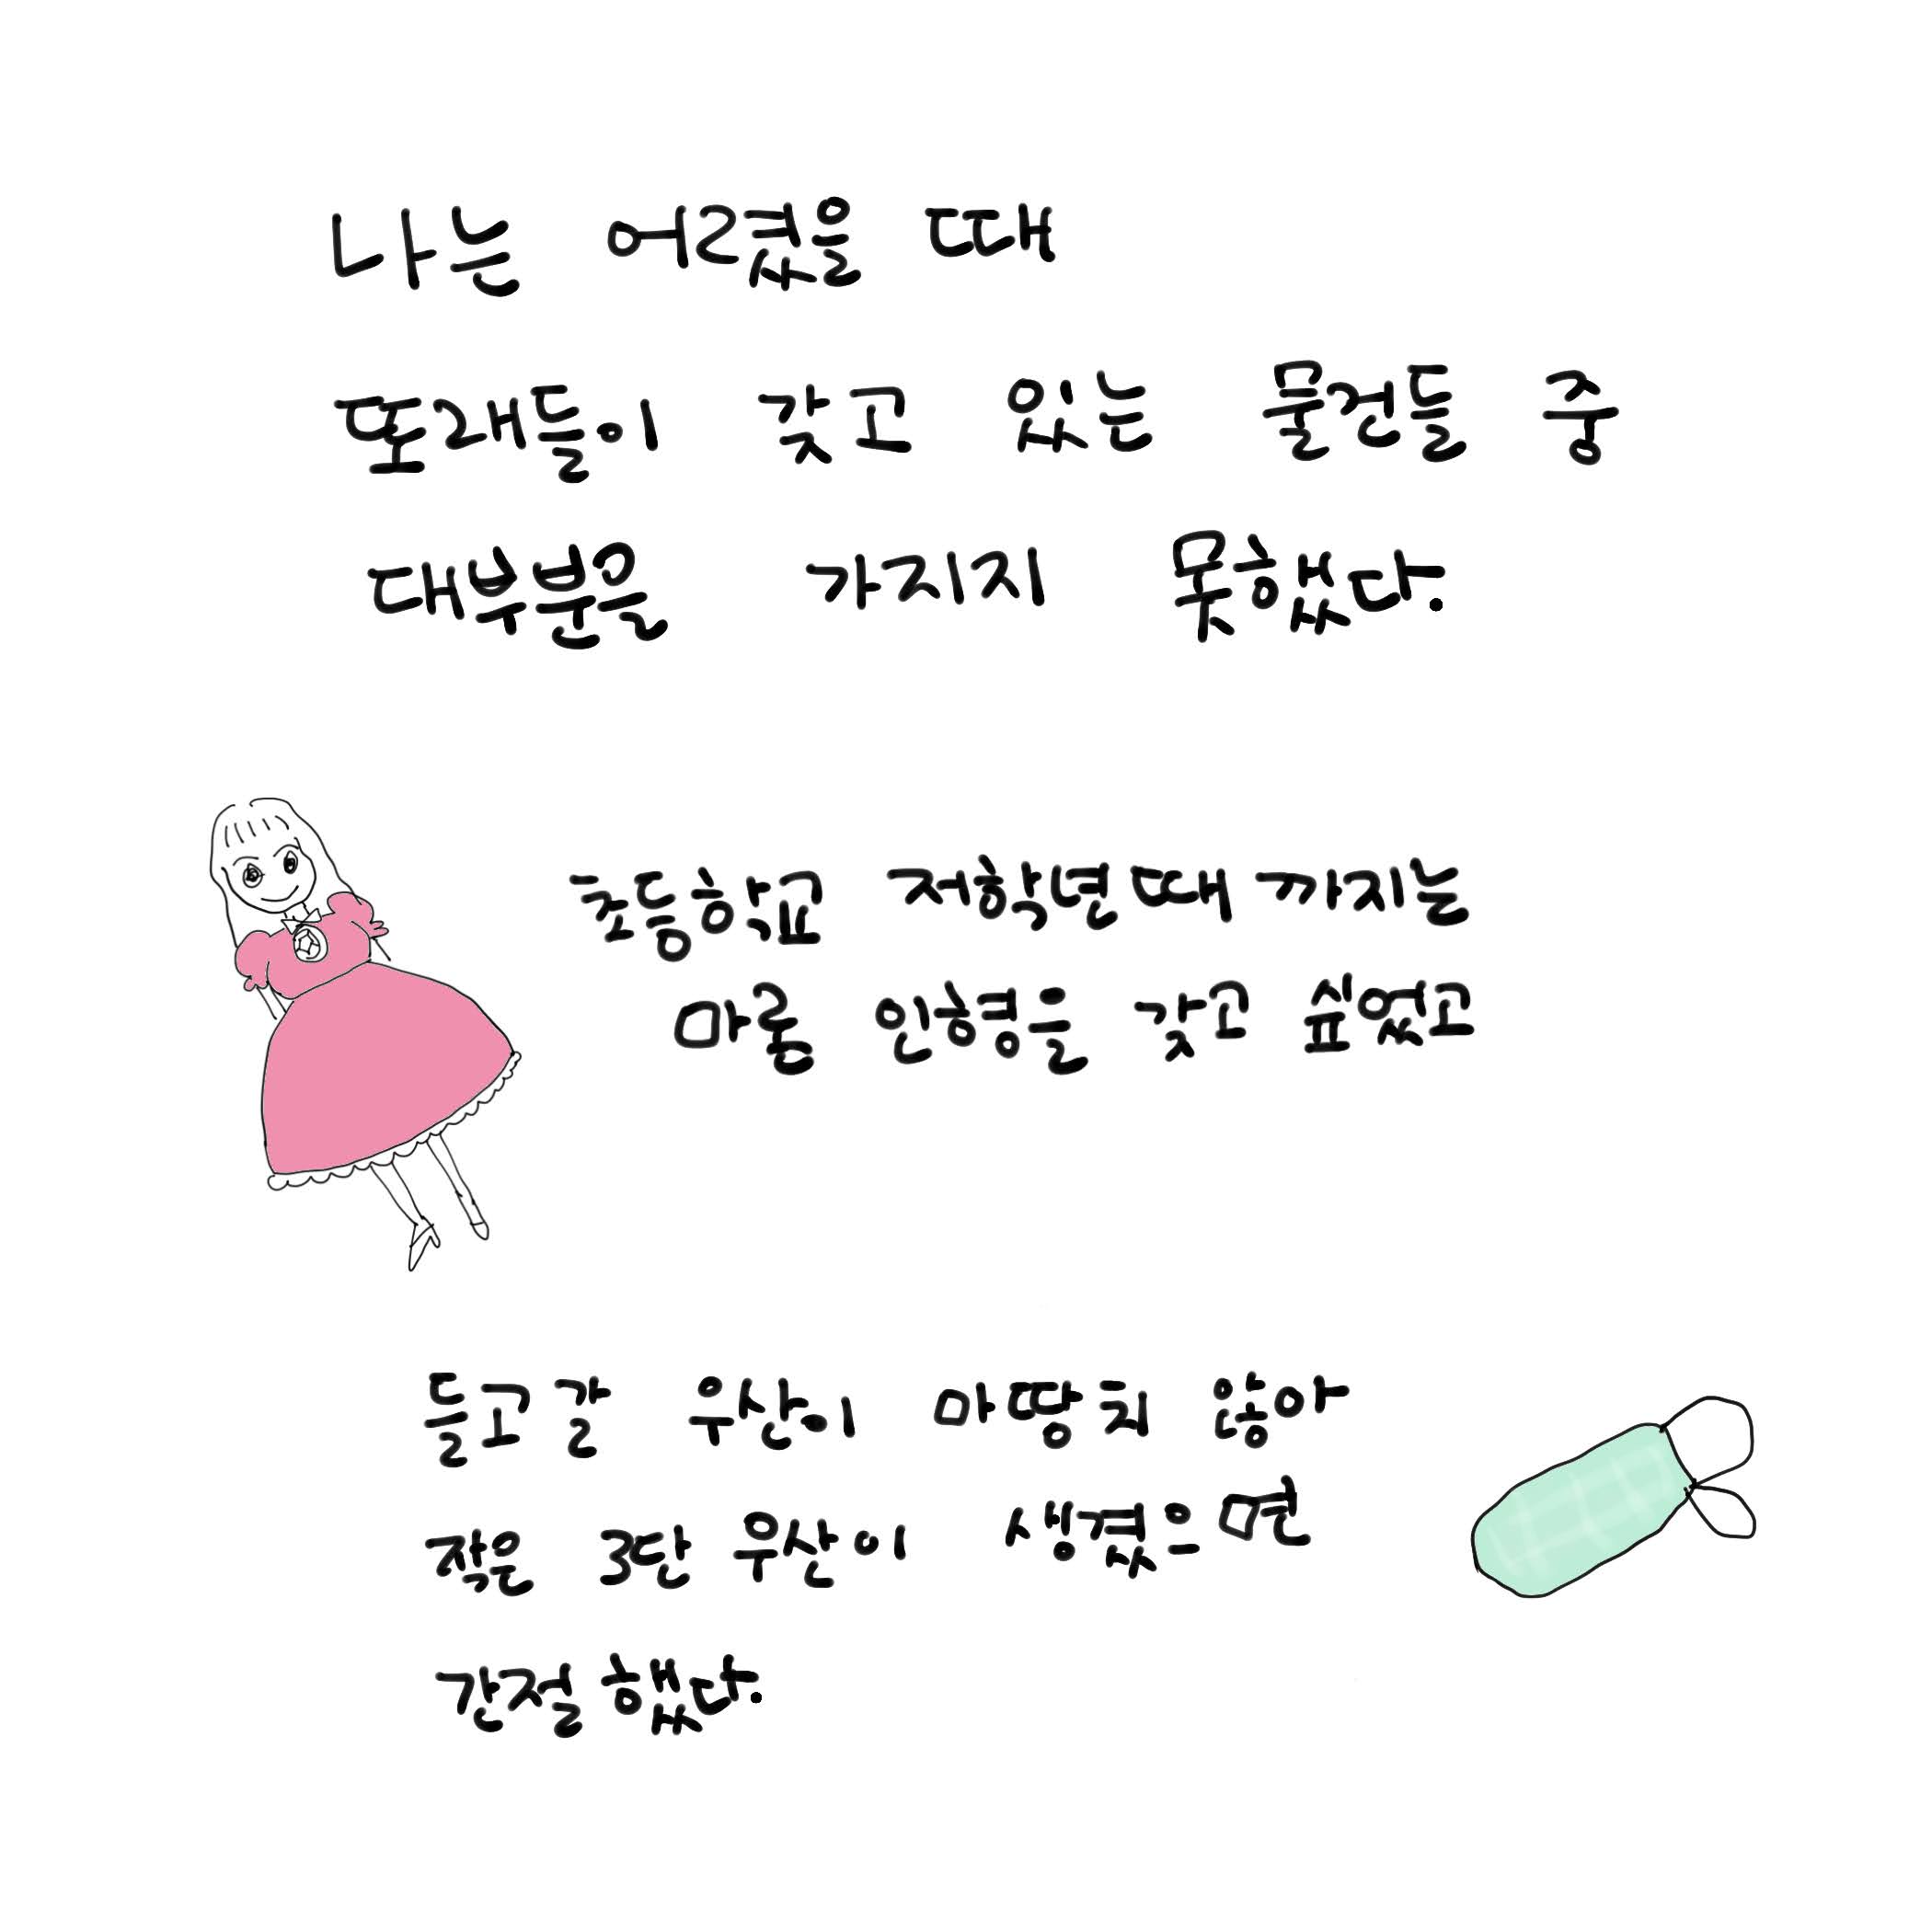 나는 어렸을 때
또래들이 갖고 있는 물건들 중
대부분을 가지지 못했다.
초등학교 저학년때 까지는
마론 인형을 갖고 싶었고
들고갈 우산이 마땅치 않아
작은 3단 우산이 생겼으면
간절했다.